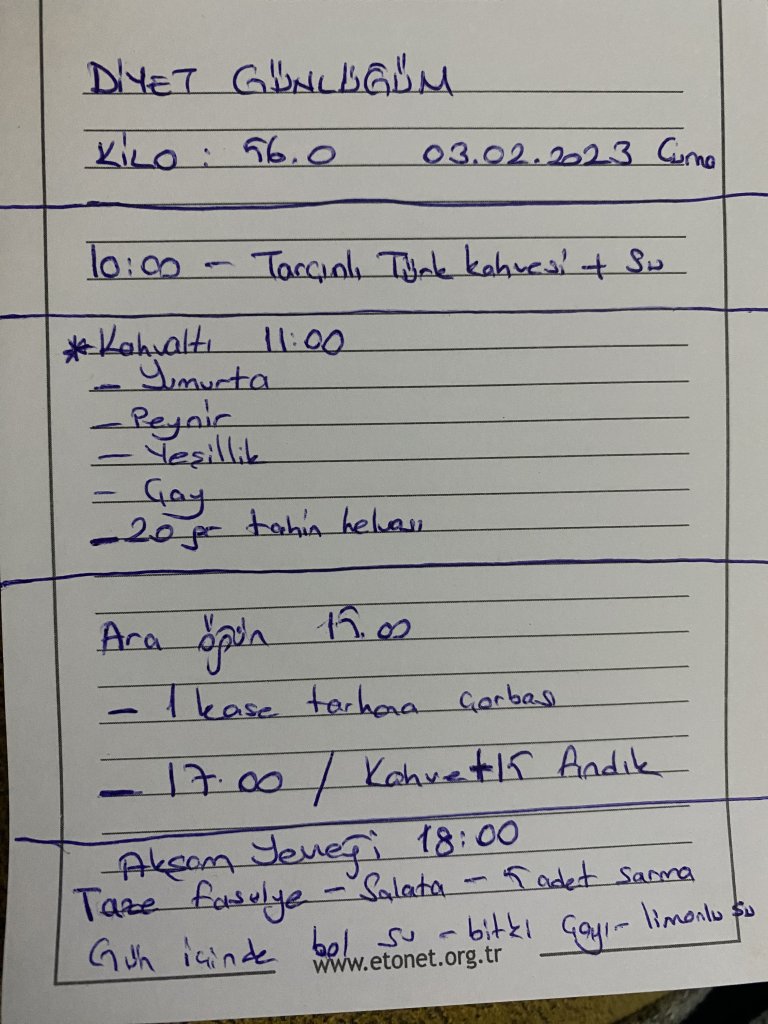 DİYET GÜNLÜĞÜM
KİLO : 56.0 03.02.2023 Cuma
10:00 - Tarçınlı Türk kahvesi + Su
* Kahvaltı 11:00
- Yumurta
- Peynir
- Yeşillik
- Çay
- 20 gr tahin helvası
Ara öğün 15.00
- 1 kase tarhana çorbası
- 17.00 / Kahve + 15 Fındık
Akşam Yemeği 18:00
Taze fasulye - Salata - 5 adet sarma
Gün içinde bol su - bitki çayı - limonlu su
www.etonet.org.tr